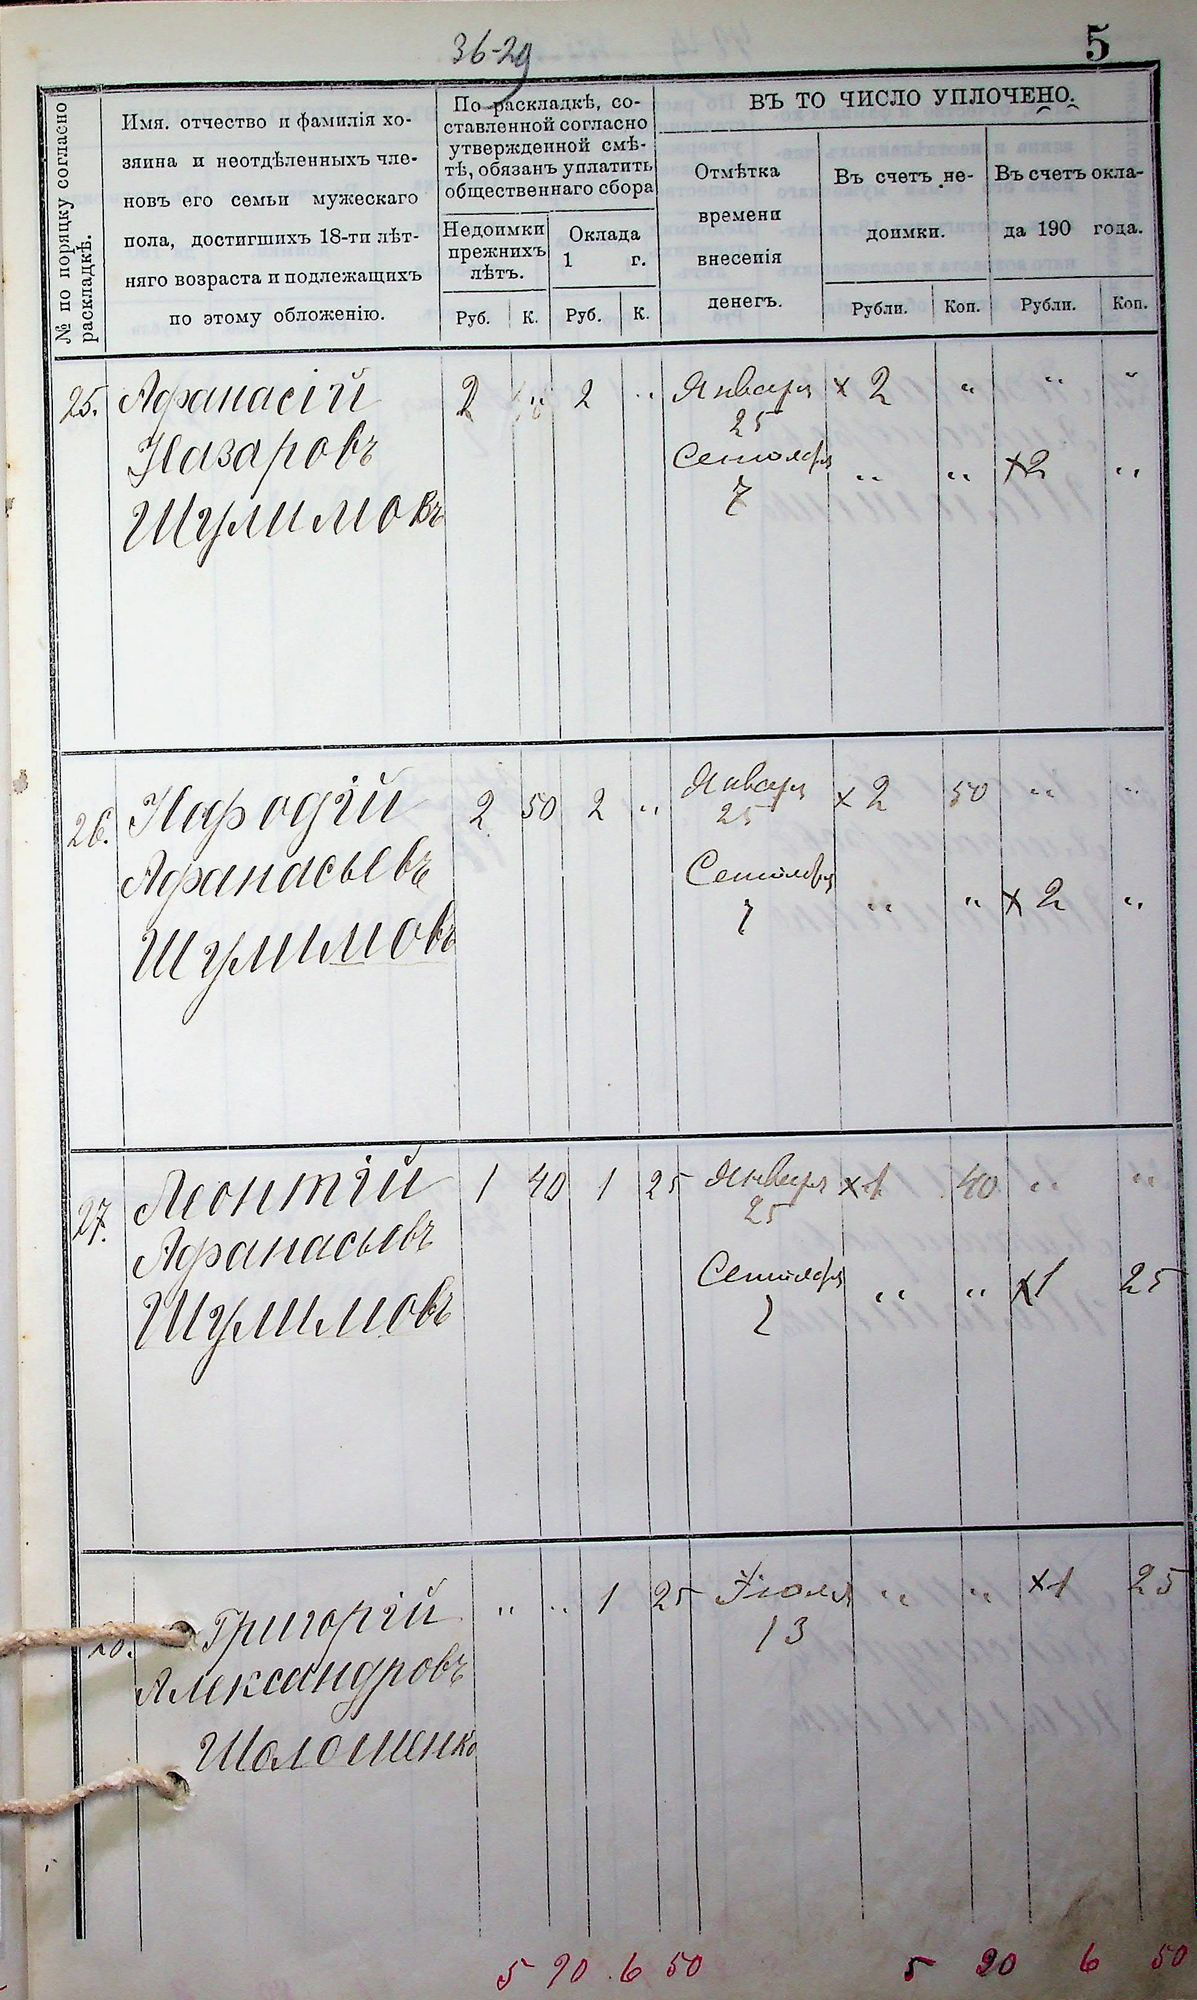 36-29
5
№ по порядку согласно раскладкѣ.
Имя. отчество и фамилія хо-
зяина и неотдѣленныхъ чле-
новъ его семьи мужескаго
пола, достигшихъ 18-ти лѣт-
няго возраста и подлежащихъ
по этому обложенію.
По раскладкѣ, со-
ставленной согласно
утвержденной смѣ-
тѣ, обязанъ уплатить
общественнаго сбора
Недоимки
прежнихъ
лѣтъ.
Оклада
1 г.
Руб. К. Руб. К.
ВЪ ТО ЧИСЛО УПЛОЧЕНО.
Отмѣтка
времени
внесенія
денегъ.
Въ счетъ не-
доимки.
Въ счетъ окла-
да 190 года.
Рубли. Коп. Рубли. Коп.
25. Афанасій 2 " 2 " Января × 2 " " "
25
Назаровъ Сентября " " × 2 "
7
Шулимовъ
26. Мефодій 2 50 2 " Января × 2 50 " "
25
Афанасьевъ Сентября " " × 2 "
7
Шулимовъ
27. Леонтій 1 40 1 25 Января × 1 40 " "
25
Афанасьевъ Сентября " " × 1 25
Шулимовъ
28. Григорій " " 1 25 Іюля " " × 1 25
13
Александровъ
Шаломенко
5 90 6 50 5 90 6 50